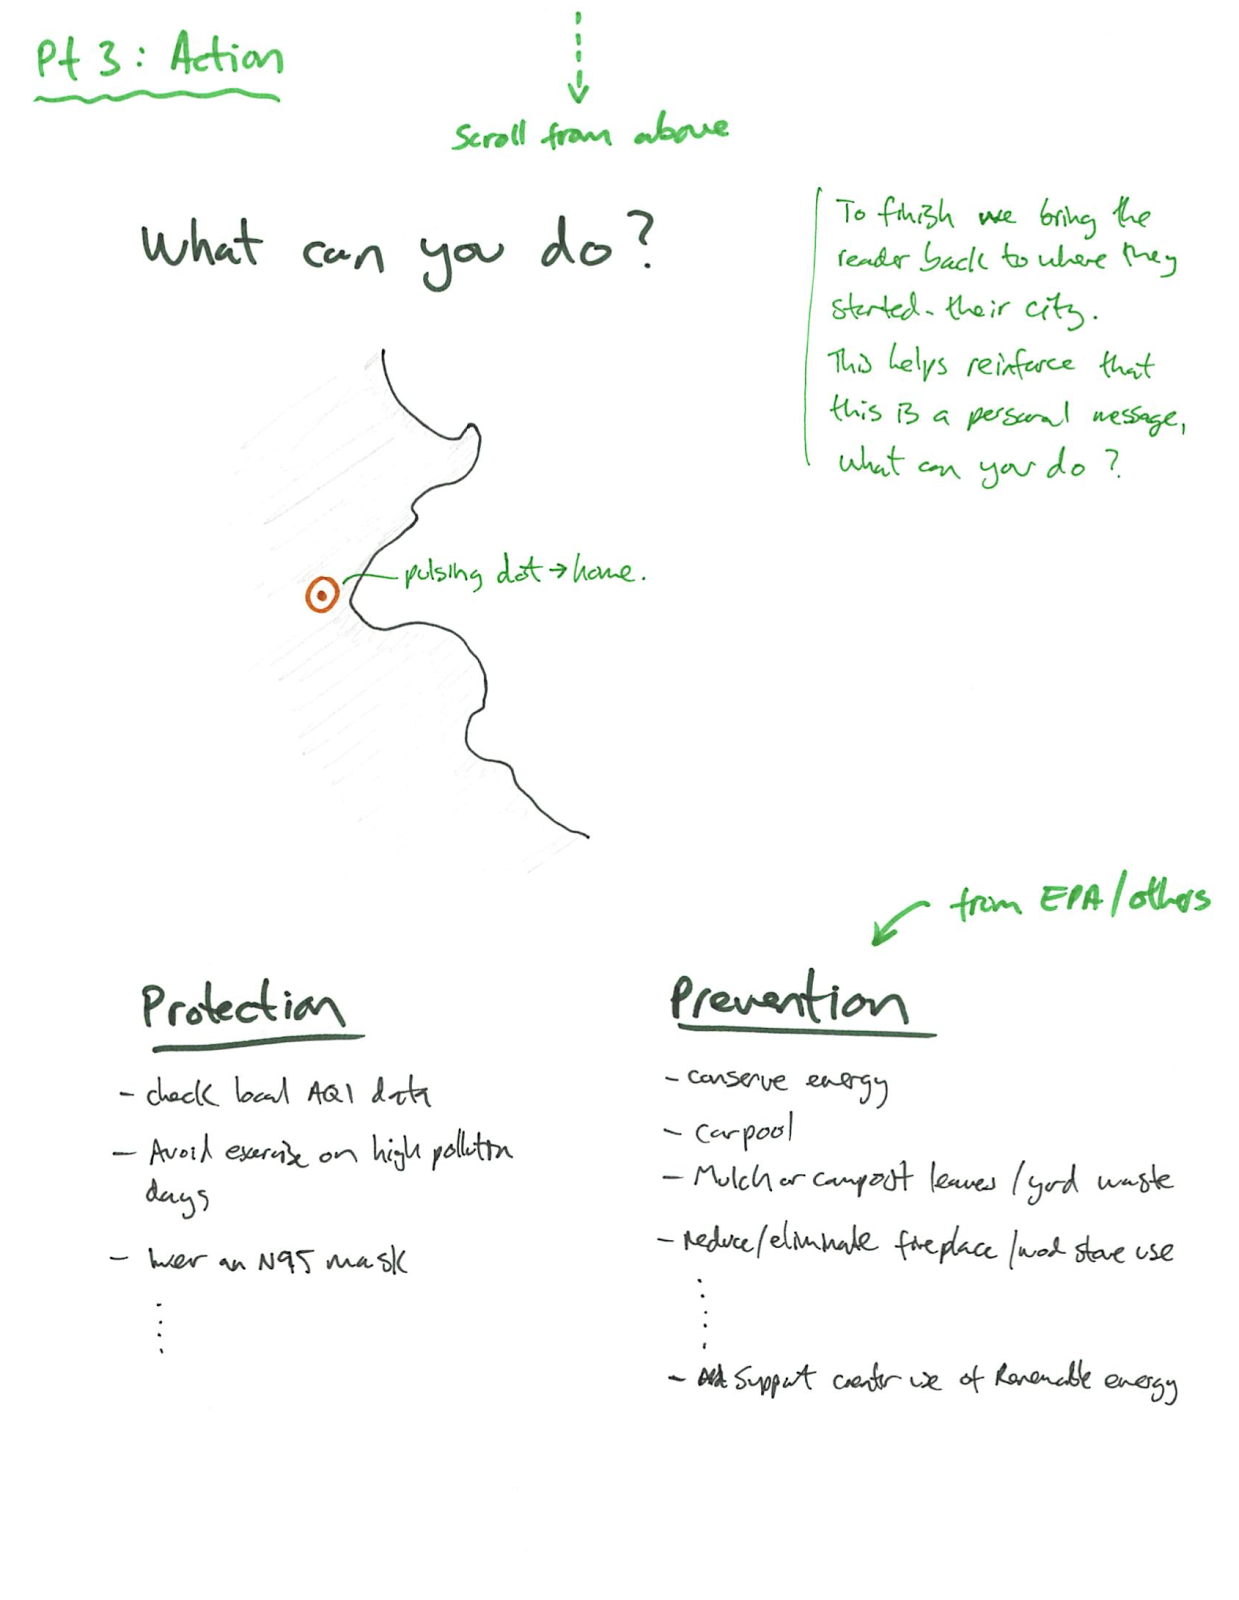 Pt 3: Action
Scroll from above
What can you do?
To finish we bring the
reader back to where they
started - their city.
This helps reinforce that
this is a personal message,
what can you do?
pulsing dot → home.
from EPA/others
Protection
- check local AQI data
- Avoid exercise on high pollution
days
- an N95 mask
Prevention
- conserve energy
- carpool
- Mulch or compost leaves / yard waste
- reduce/eliminate fireplace / wood stove use
- Support use of Renewable energy